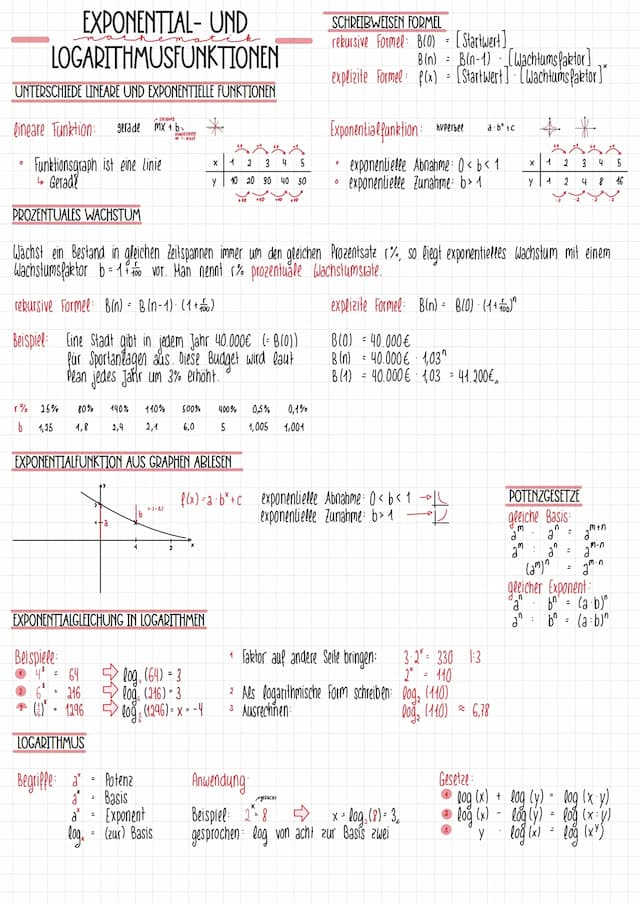 EXPONENTIAL- UND
mathematik
LOGARITHMUSFUNKTIONEN
SCHREIBWEISEN FORMEL
rekursive Formel: B(0) = [Startwert]
B(n) = B(n-1) · [Wachtumsfaktor]
explizite Formel: f(x) = [Startwert] · [Wachtumsfaktor]ˣ
UNTERSCHIEDE LINEARE UND EXPONENTIELLE FUNKTIONEN
lineare Funktion: gerade mx + b
• Funktionsgraph ist eine Linie
↳ Gerade
x 1 2 3 4 5
y 10 20 30 40 50
+10 +10 +10 +10
Exponentialfunktion: HYPERBEL a·bˣ+c
• exponentielle Abnahme: 0 < b < 1
• exponentielle Zunahme: b > 1
x 1 2 3 4 5
y 1 2 4 8 16
·2 ·2 ·2 ·2
PROZENTUALES WACHSTUM
Wächst ein Bestand in gleichen Zeitspannen immer um den gleichen Prozentsatz r%, so liegt exponentielles Wachstum mit einem
Wachstumsfaktor b = 1 + r/100 vor. Man nennt r% prozentuale Wachstumsrate.
rekursive Formel: B(n) = B(n-1) · (1 + r/100)
explizite Formel: B(n) = B(0) · (1 + r/100)ⁿ
Beispiel: Eine Stadt gibt in jedem Jahr 40.000€ (= B(0))
für Sportanlagen aus. Diese Budget wird laut
Plan jedes Jahr um 3% erhöht.
B(0) = 40.000€
B(n) = 40.000€ · 1,03ⁿ
B(1) = 40.000€ · 1,03 = 41.200€
r% 25% 80% 140% 110% 500% 400% 0,5% 0,1%
b 1,25 1,8 2,4 2,1 6,0 5 1,005 1,001
EXPONENTIALFUNKTION AUS GRAPHEN ABLESEN
y
a
b
1 2 x
f(x) = a · bˣ + c
exponentielle Abnahme: 0 < b < 1 →
exponentielle Zunahme: b > 1 →
POTENZGESETZE
gleiche Basis:
aᵐ · aⁿ = aᵐ⁺ⁿ
aᵐ : aⁿ = aᵐ⁻ⁿ
(aᵐ)ⁿ = aᵐ·ⁿ
gleicher Exponent:
aⁿ · bⁿ = (a·b)ⁿ
aⁿ : bⁿ = (a:b)ⁿ
EXPONENTIALGLEICHUNG IN LOGARITHMEN
Beispiele:
1 4ˣ = 64 ⇨ log₄(64) = 3
2 6ˣ = 216 ⇨ log₆(216) = 3
3 (1/6)ˣ = 1296 ⇨ log(1296) = x = -4
1 Faktor auf andere Seite bringen: 3·2ˣ = 330 |:3
2ˣ = 110
2 Als logarithmische Form schreiben: log₂(110)
3 Ausrechnen: log₂(110) ≈ 6,78
LOGARITHMUS
Begriffe: aˣ = Potenz
aˣ = Basis
aˣ = Exponent
logₐ = (zur) Basis
Anwendung:
Beispiel: 2ˣ = 8 ⇨ x = log₂(8) = 3
gesprochen: log von acht zur Basis zwei
Gesetze:
1 log(x) + log(y) = log(x·y)
2 log(x) - log(y) = log(x:y)
3 y · log(x) = log(xʸ)